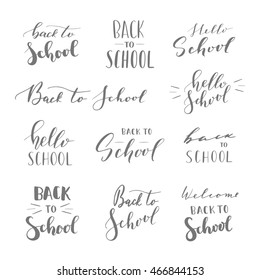 back to
School
BACK
TO
SCHOOL
Hello
School
Back to School
hello
School
hello
SCHOOL
BACK TO
School
back
TO SCHOOL
BACK
TO
School
Back to
School
Welcome
BACK TO
School
466844153